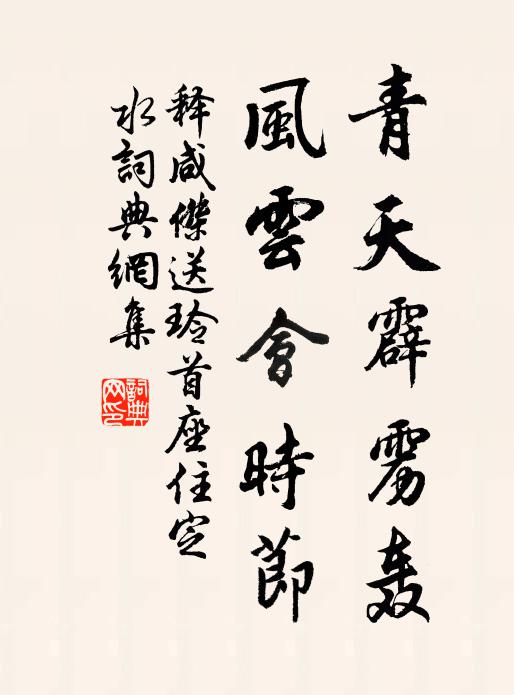 青天霹雳轰
風雲會時節
释咸傑送玲首座住定
水詞典網集
詞典网印